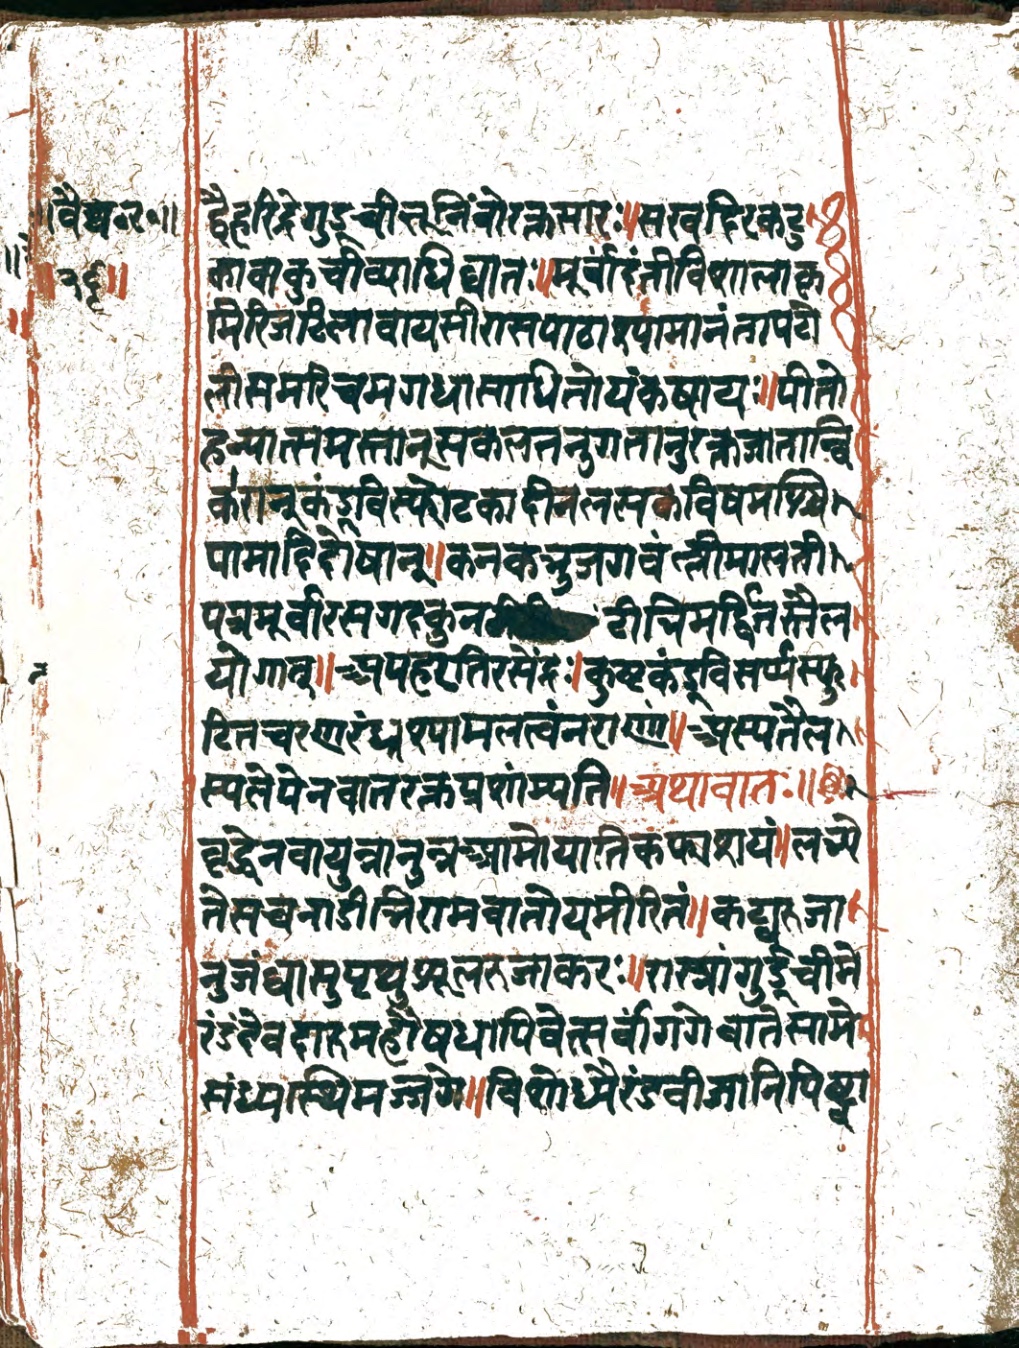 ॥वैद्यर॰॥
॥२६॥
द्वैहरिद्रेगुडूचीत्तूनिंबोरक्तसारः॥सखदिरकटु
कावाकुचीव्याधिघातः॥मूर्वादंतीविशालाक्र
मिरिजटिलावायसीरासपाठाश्यामानंतापटो
लीसमरिचमगधासाधितोयंकषायः॥पीतो
हन्यात्समस्तान्सकलतनुगतान्रक्तजातान्वि
कारान्कंडूविस्फोटकादीनलसकविषमश्वि
पामादिदोषान्॥कनकभुजगवंल्लीमालती
पत्रमूर्वारसगदकुनटीभिर्मर्द्दितस्तैल
योगात्॥अपहरतिरसेंद्रः।कुष्टकंडूविसर्प्पस्फु
टितचरणरंध्रश्यामलत्वंनराणां॥अस्यतैल
स्यलेपेनवातरक्तप्रशांम्यति॥अथावातः॥
वृद्धेनवायुन्नानुन्नआमोयातिकफाशयं॥लभ्ये
तेसचनाडीभिरामवातोयमीरितं॥कट्यूरुजा
नुजंघासुपृथुशूलरुजाकरः॥रास्नांगुडूचीमे
रंडंदेवदारुमहौषधापिवेत्सर्वांगगेवातेसामे
संध्यास्थिमज्जगे॥विशोध्यैरंडवीजानिपिष्ट्वा